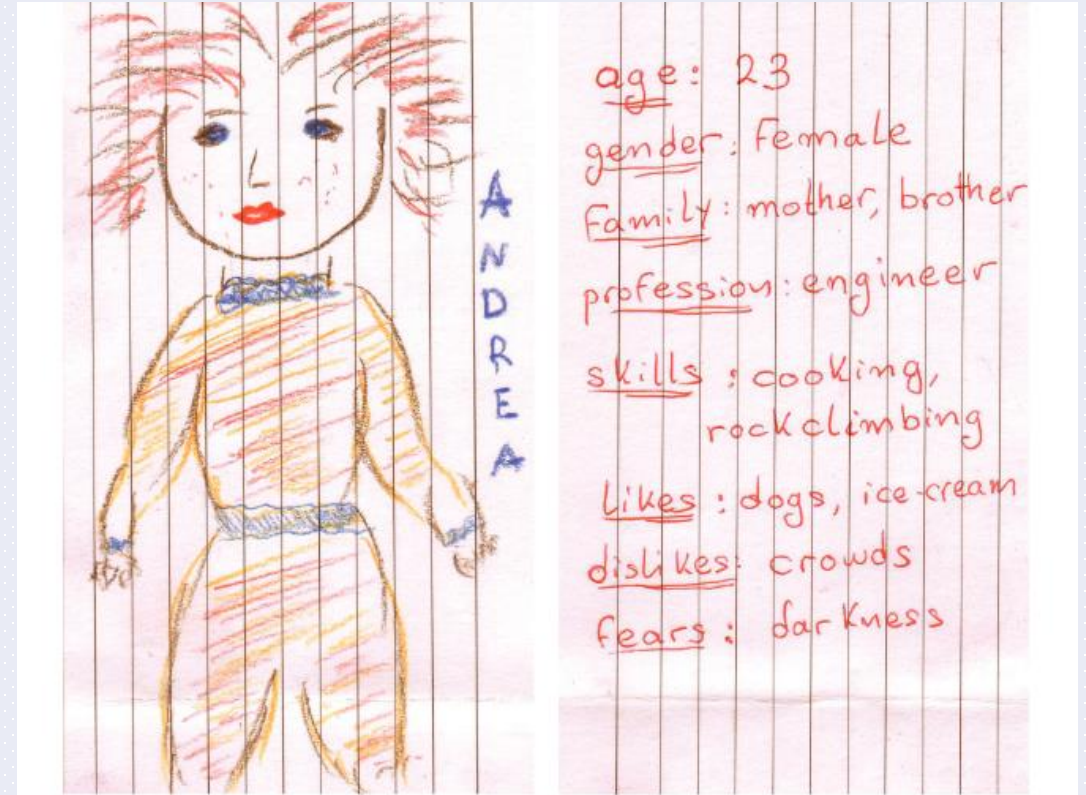 ANDREA
age: 23
gender: Female
Family: mother, brother
profession: engineer
skills: cooking,
rock climbing
Likes: dogs, ice-cream
dislikes: crowds
fears: darkness